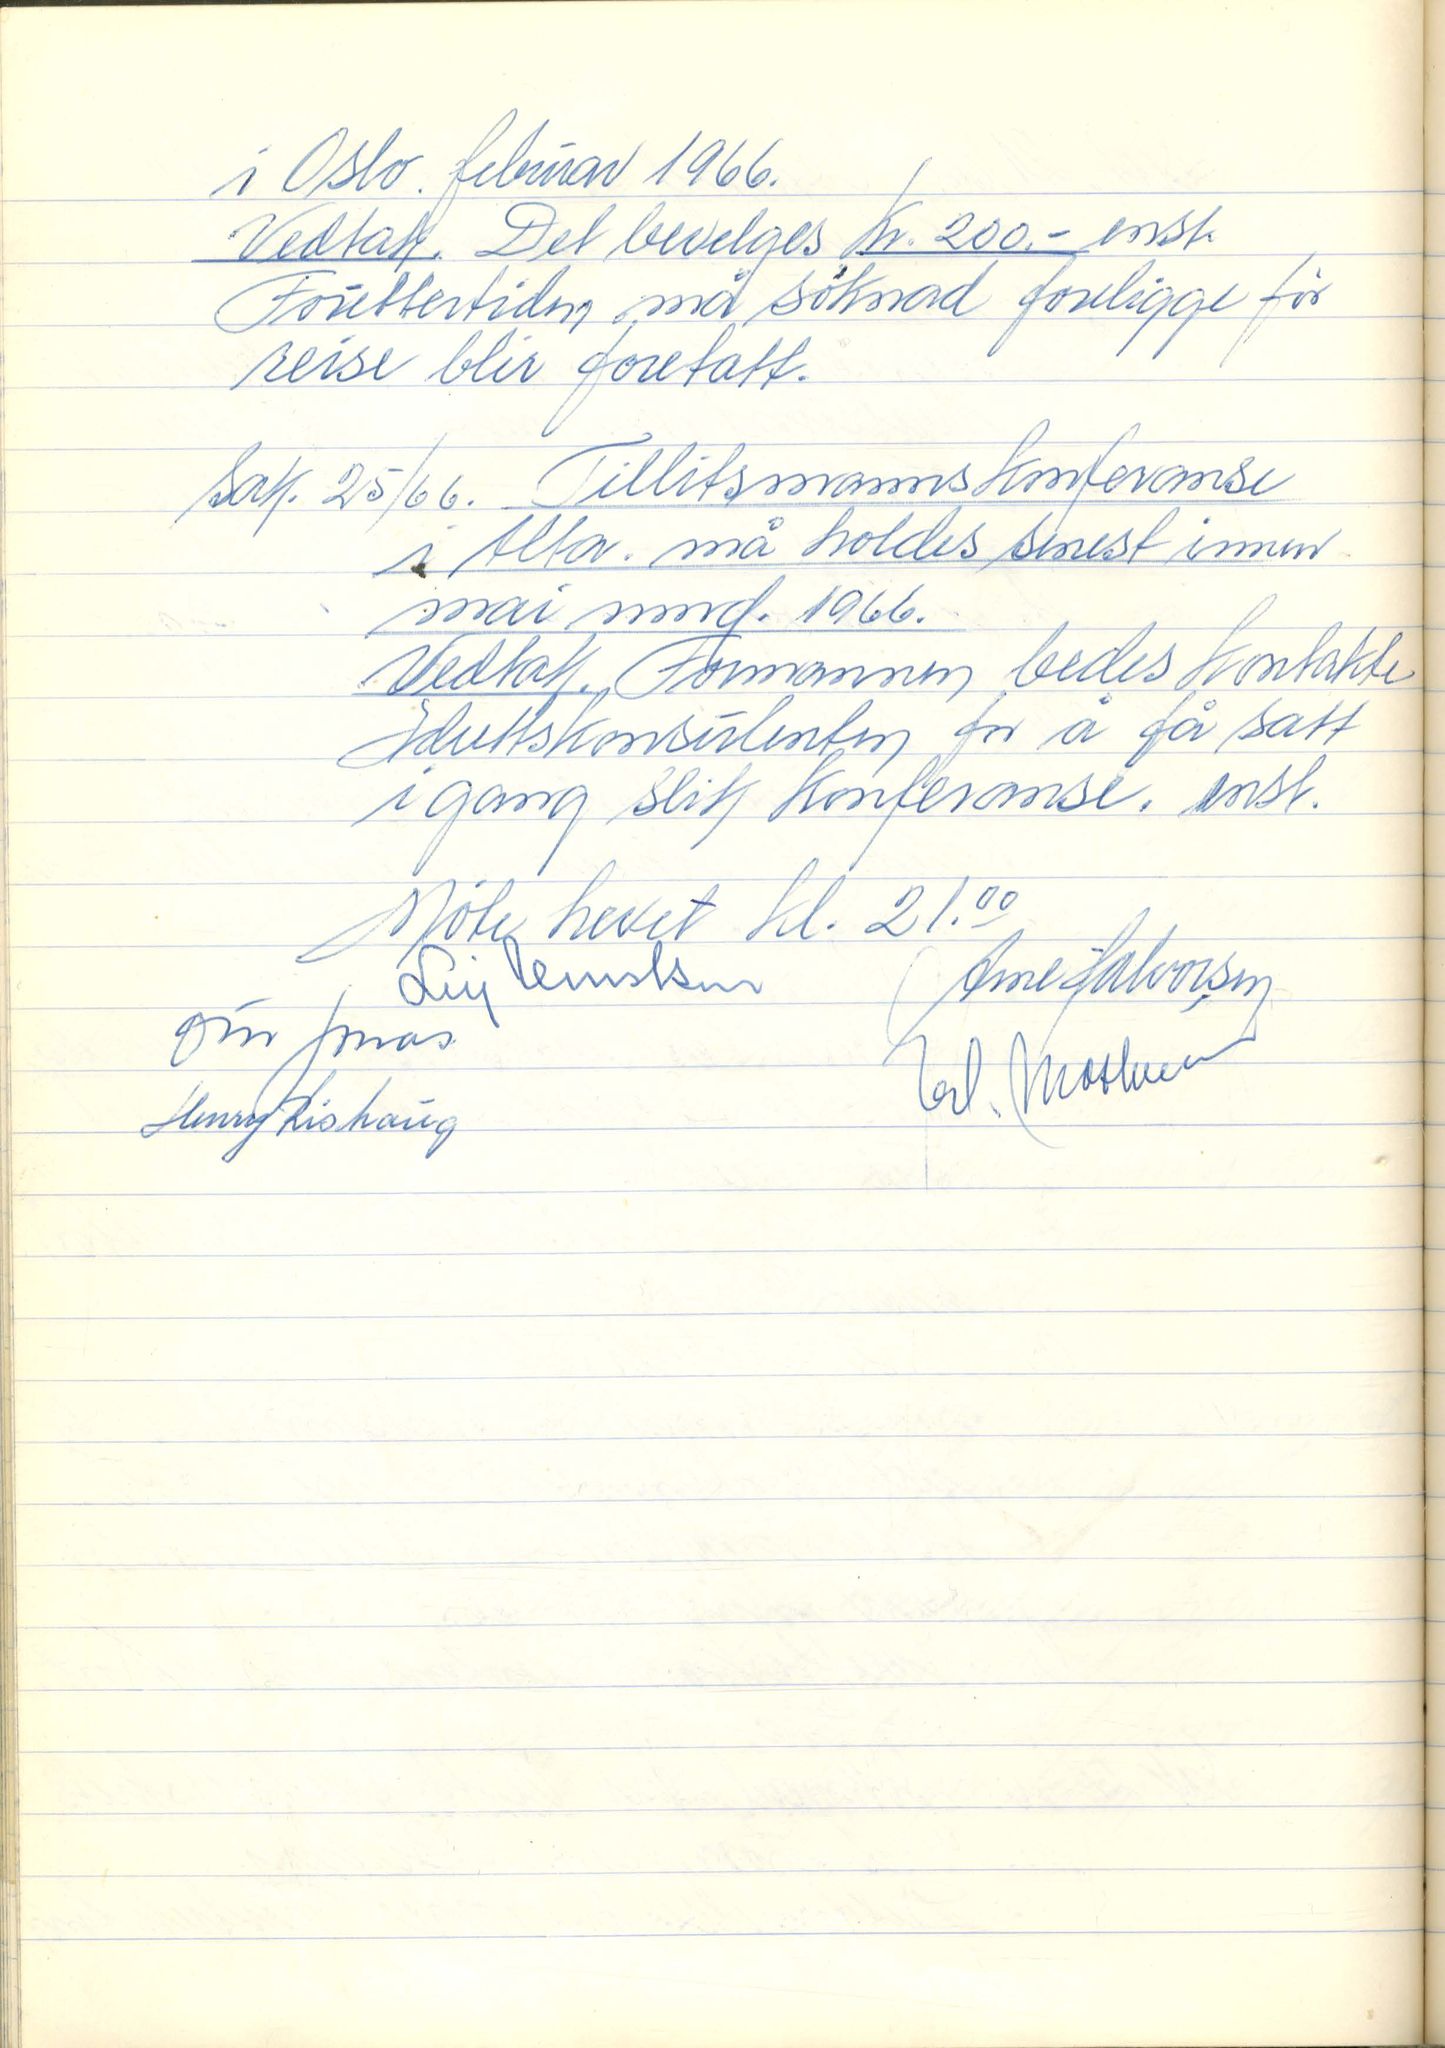 i Oslo. februar 1966.
Vedtak. Det bevelges kr. 200.- enst.
Forettertiden må söknad foreligge för
reise blir foretatt.
Sak. 25/66. Tillitsmannskonferanse
i Alta. må holdes senest innen
mai mnd. 1966.
Vedtak. Formannen bedes kontakte
Idrettskonsulenten for å få satt
i gang slik konferanse. enst.
Möte hevet kl. 21.00
Arne Halvorsen
Jonas
Henry Lishaug